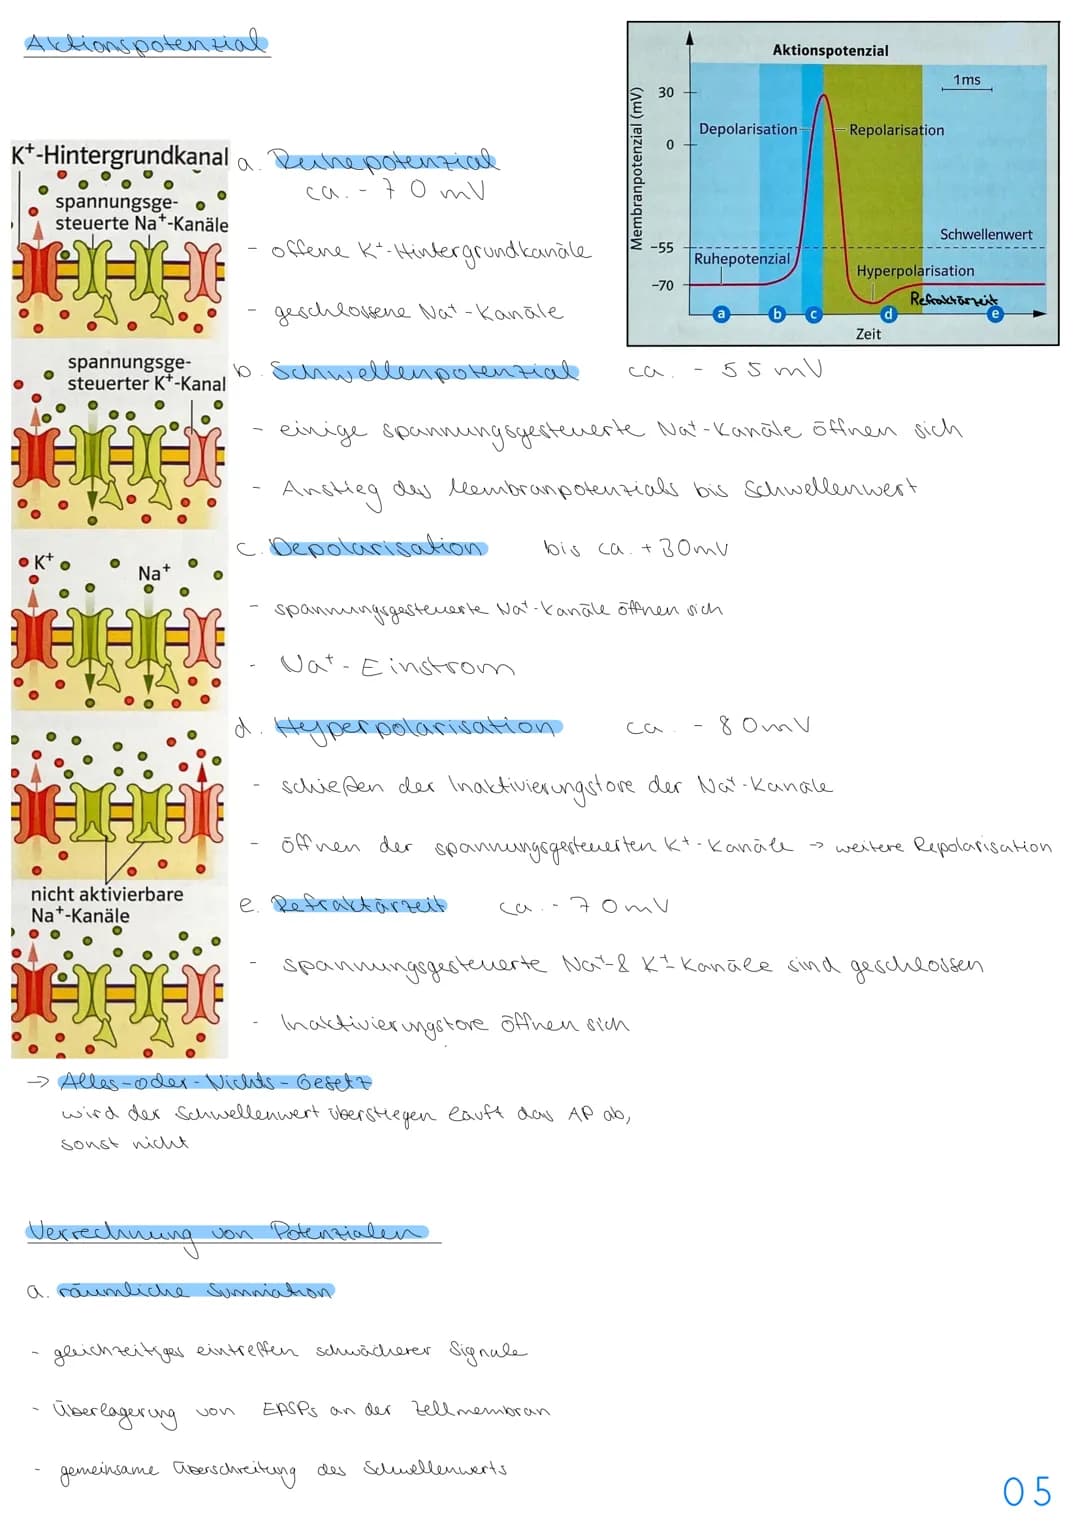 Aktionspotenzial
Aktionspotenzial
Membranpotenzial (mV)
30
0
-55
-70
1ms
Depolarisation
Repolarisation
Schwellenwert
Ruhepotenzial
Hyperpolarisation
Refraktärzeit
a
b
c
d
e
Zeit
K+-Hintergrundkanal
spannungsge-
steuerte Na+-Kanäle
a. Ruhepotenzial
ca. - 70 mV
- offene K+-Hintergrundkanäle
- geschlossene Na+-Kanäle
spannungsge-
steuerter K+-Kanal
b. Schwellenpotenzial ca. - 55 mV
- einige spannungsgesteuerte Na+-Kanäle öffnen sich
- Anstieg des Membranpotenzials bis Schwellenwert
K+
Na+
c. Depolarisation bis ca. +30mV
- spannungsgesteuerte Na+-Kanäle öffnen sich
- Na+- Einstrom
d. Hyperpolarisation ca. - 80mV
- schießen der Inaktivierungstore der Na+-Kanäle
- öffnen der spannungsgesteuerten K+-Kanäle -> weitere Repolarisation
nicht aktivierbare
Na+-Kanäle
e. Refraktärzeit ca. - 70mV
- spannungsgesteuerte Na+-& K+-Kanäle sind geschlossen
- Inaktivierungstore öffnen sich
-> Alles-oder-Nichts-Gesetz
wird der Schwellenwert überstiegen läuft das AP ab,
sonst nicht
Verrechnung von Potenzialen
a. räumliche Summation
- gleichzeitiges eintreffen schwächerer Signale
- Überlagerung von EPSPs an der Zellmembran
- gemeinsame Überschreitung des Schwellenwerts
05